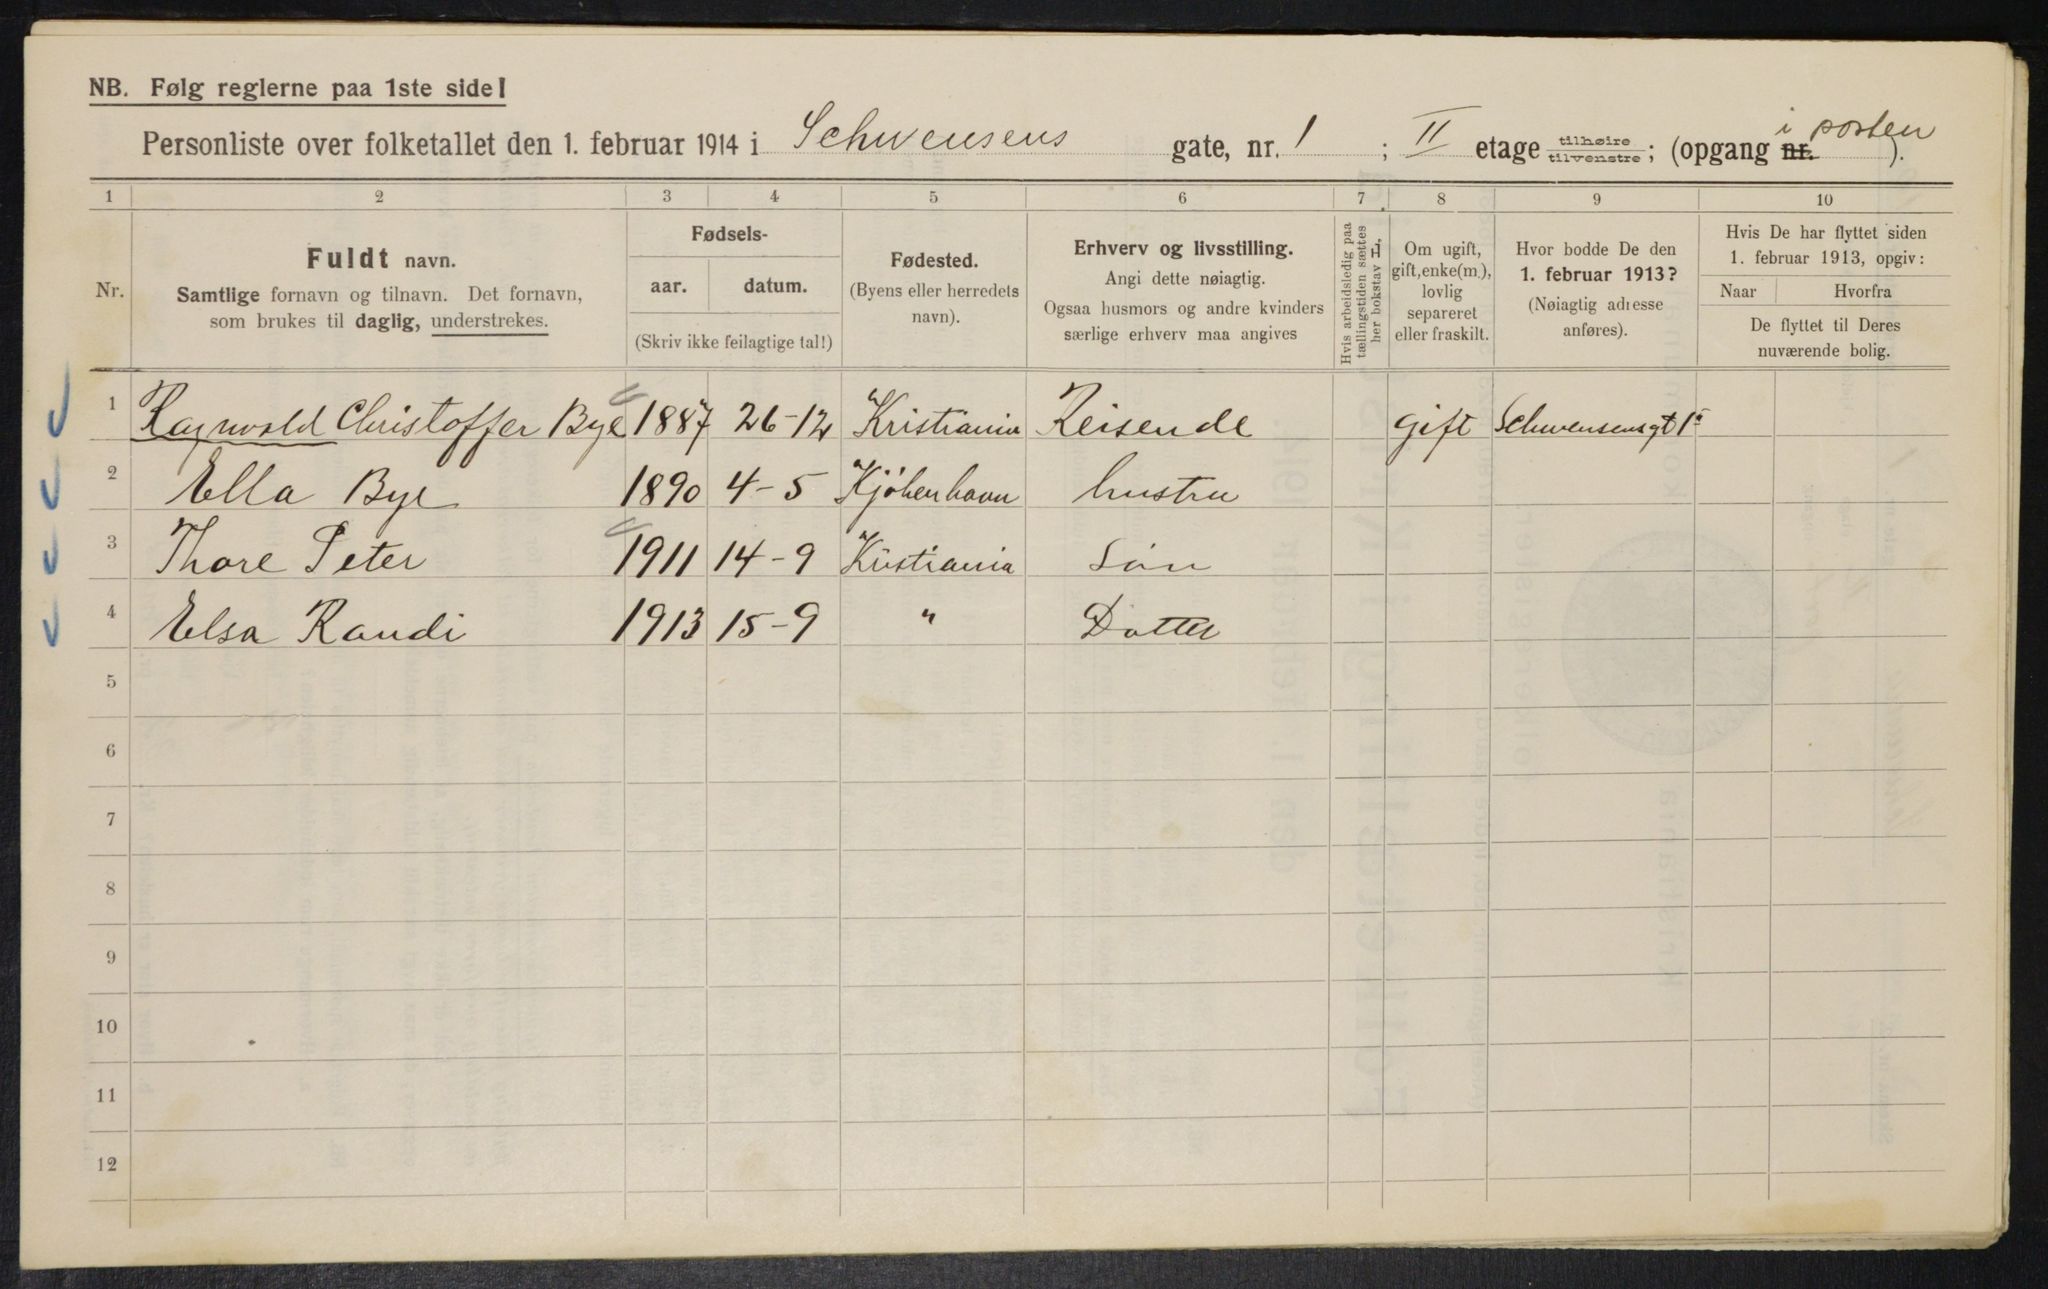 NB. Følg reglerne paa 1ste side!
Personliste over folketallet den 1. februar 1914 i Schwensens gate, nr. 1 ; II etage tilhøire tilvenstre; (opgang nr. i porten ).
1 2 3 4 5 6 7 8 9 10
Nr.
Fuldt navn.
Samtlige fornavn og tilnavn. Det fornavn,
som brukes til daglig, understrekes.
Fødsels-
aar. datum.
(Skriv ikke feilagtige tal!)
Fødested.
(Byens eller herredets
navn).
Erhverv og livsstilling.
Angi dette nøiagtig.
Ogsaa husmors og andre kvinders
særlige erhverv maa angives
Hvis arbeidsledig paa
tællingstiden sættes
her bokstav L.
Om ugift,
gift, enke(m.),
lovlig
separeret
eller fraskilt.
Hvor bodde De den
1. februar 1913?
(Nøiagtig adresse
anføres).
Hvis De har flyttet siden
1. februar 1913, opgiv:
Naar Hvorfra
De flyttet til Deres
nuværende bolig.
1 Ragnvald Christoffer Bye 1887 26-12 Kristiania Reisende gift Schwensensgt 1
2 Ella Bye 1890 4-5 Kjøbenhavn hustru
3 Thore Peter 1911 14-9 Kristiania Søn
4 Elsa Randi 1913 15-9 " Datter
5
6
7
8
9
10
11
12